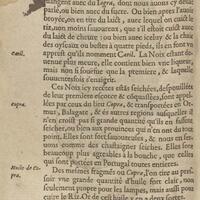 mangent avec du Iagra, dont nous avons cy devant
parlé, ou bien avec du sucre. Ou bien apres l'avoir
broyée, on en tire du laict, avec lequel on cuict le
riz, non moins savoureux, que s'il estoit cuict avec
du laict de chevre: ou bien avec icelny & la chair
des oyseaux ou bestes à quatre pieds, ils en font un
Caril.
apprest qu'ils nomment Caril. La Noix estant de-
venue plus meure, elle contient bien une liqueur,
mais non si souefue que la premiere, & laquelle
souventesfois s'enaigrit.
Ces Noix icy recentes estás seichées, despouillées
de leur premiere escorce & coquasses, sont
copra.
lées par ceux du lieu Copra, & transportées en Or-
mus, Balagate, & és autres regions ausquelles il
n'en croist point en quantité suffisante, pour les
seicher, ou bien aux provinces qui n'en ont du tout
point. Elles sont fort savoureuses, & nous en
sons comme des chastaignes seiches. Elles sont
beaucoup plus agreables à la bouche, que celles
qui sont portées en Portugal toutes entieres.
Huile de Co-
pra.
Des mesmes fragmés ou Copra, l'on en tire par
une grande quantité d'huile fort clair, non
seulement propre pour les lampes, mais aussi pour
cuire le Riz. Or de cest huile y en a deux sortes